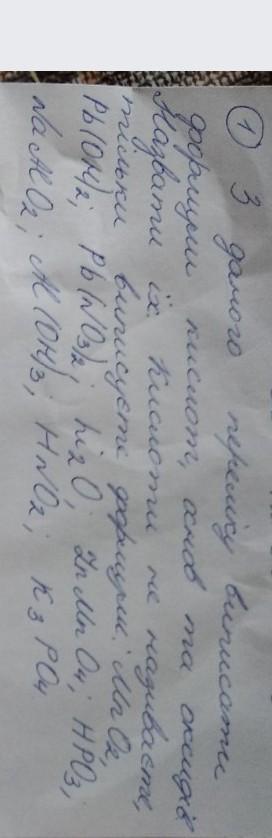 ① З даного переліку виписати
формули кислот, основ та оксидів
Назвати їх. Кислоти не називаєте,
тільки виписуєте формули: MnO2,
Pb(OH)2; Pb(NO3)2; Li2O; ZnMnO4; HPO3;
NaAlO2; Al(OH)3; HNO2; K3PO4